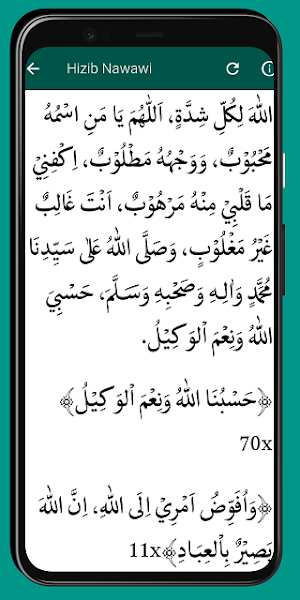 Hizib Nawawi
اللهَ لِكُلِّ شِدَّةٍ، اَللّٰهُمَّ يَا مَنِ اسْمُهُ
مَحْبُوْبٌ، وَوَجْهُهُ مَطْلُوْبٌ، اِكْفِنِيْ
مَا قَلْبِيْ مِنْهُ مَرْهُوْبٌ، اَنْتَ غَالِبٌ
غَيْرُ مَغْلُوْبٍ، وَصَلَّى اللهُ عَلىٰ سَيِّدِنَا
مُحَمَّدٍ وَاٰلِهِ وَصَحْبِهِ وَسَلَّمَ، حَسْبِيَ
اللهُ وَنِعْمَ الْوَكِيْلُ.
﴿حَسْبُنَا اللهُ وَنِعْمَ الْوَكِيْلُ﴾
70x
﴿وَاُفَوِّضُ اَمْرِيْ اِلَى اللهِ، اِنَّ اللهَ
بَصِيْرٌ بِالْعِبَادِ﴾ 11x